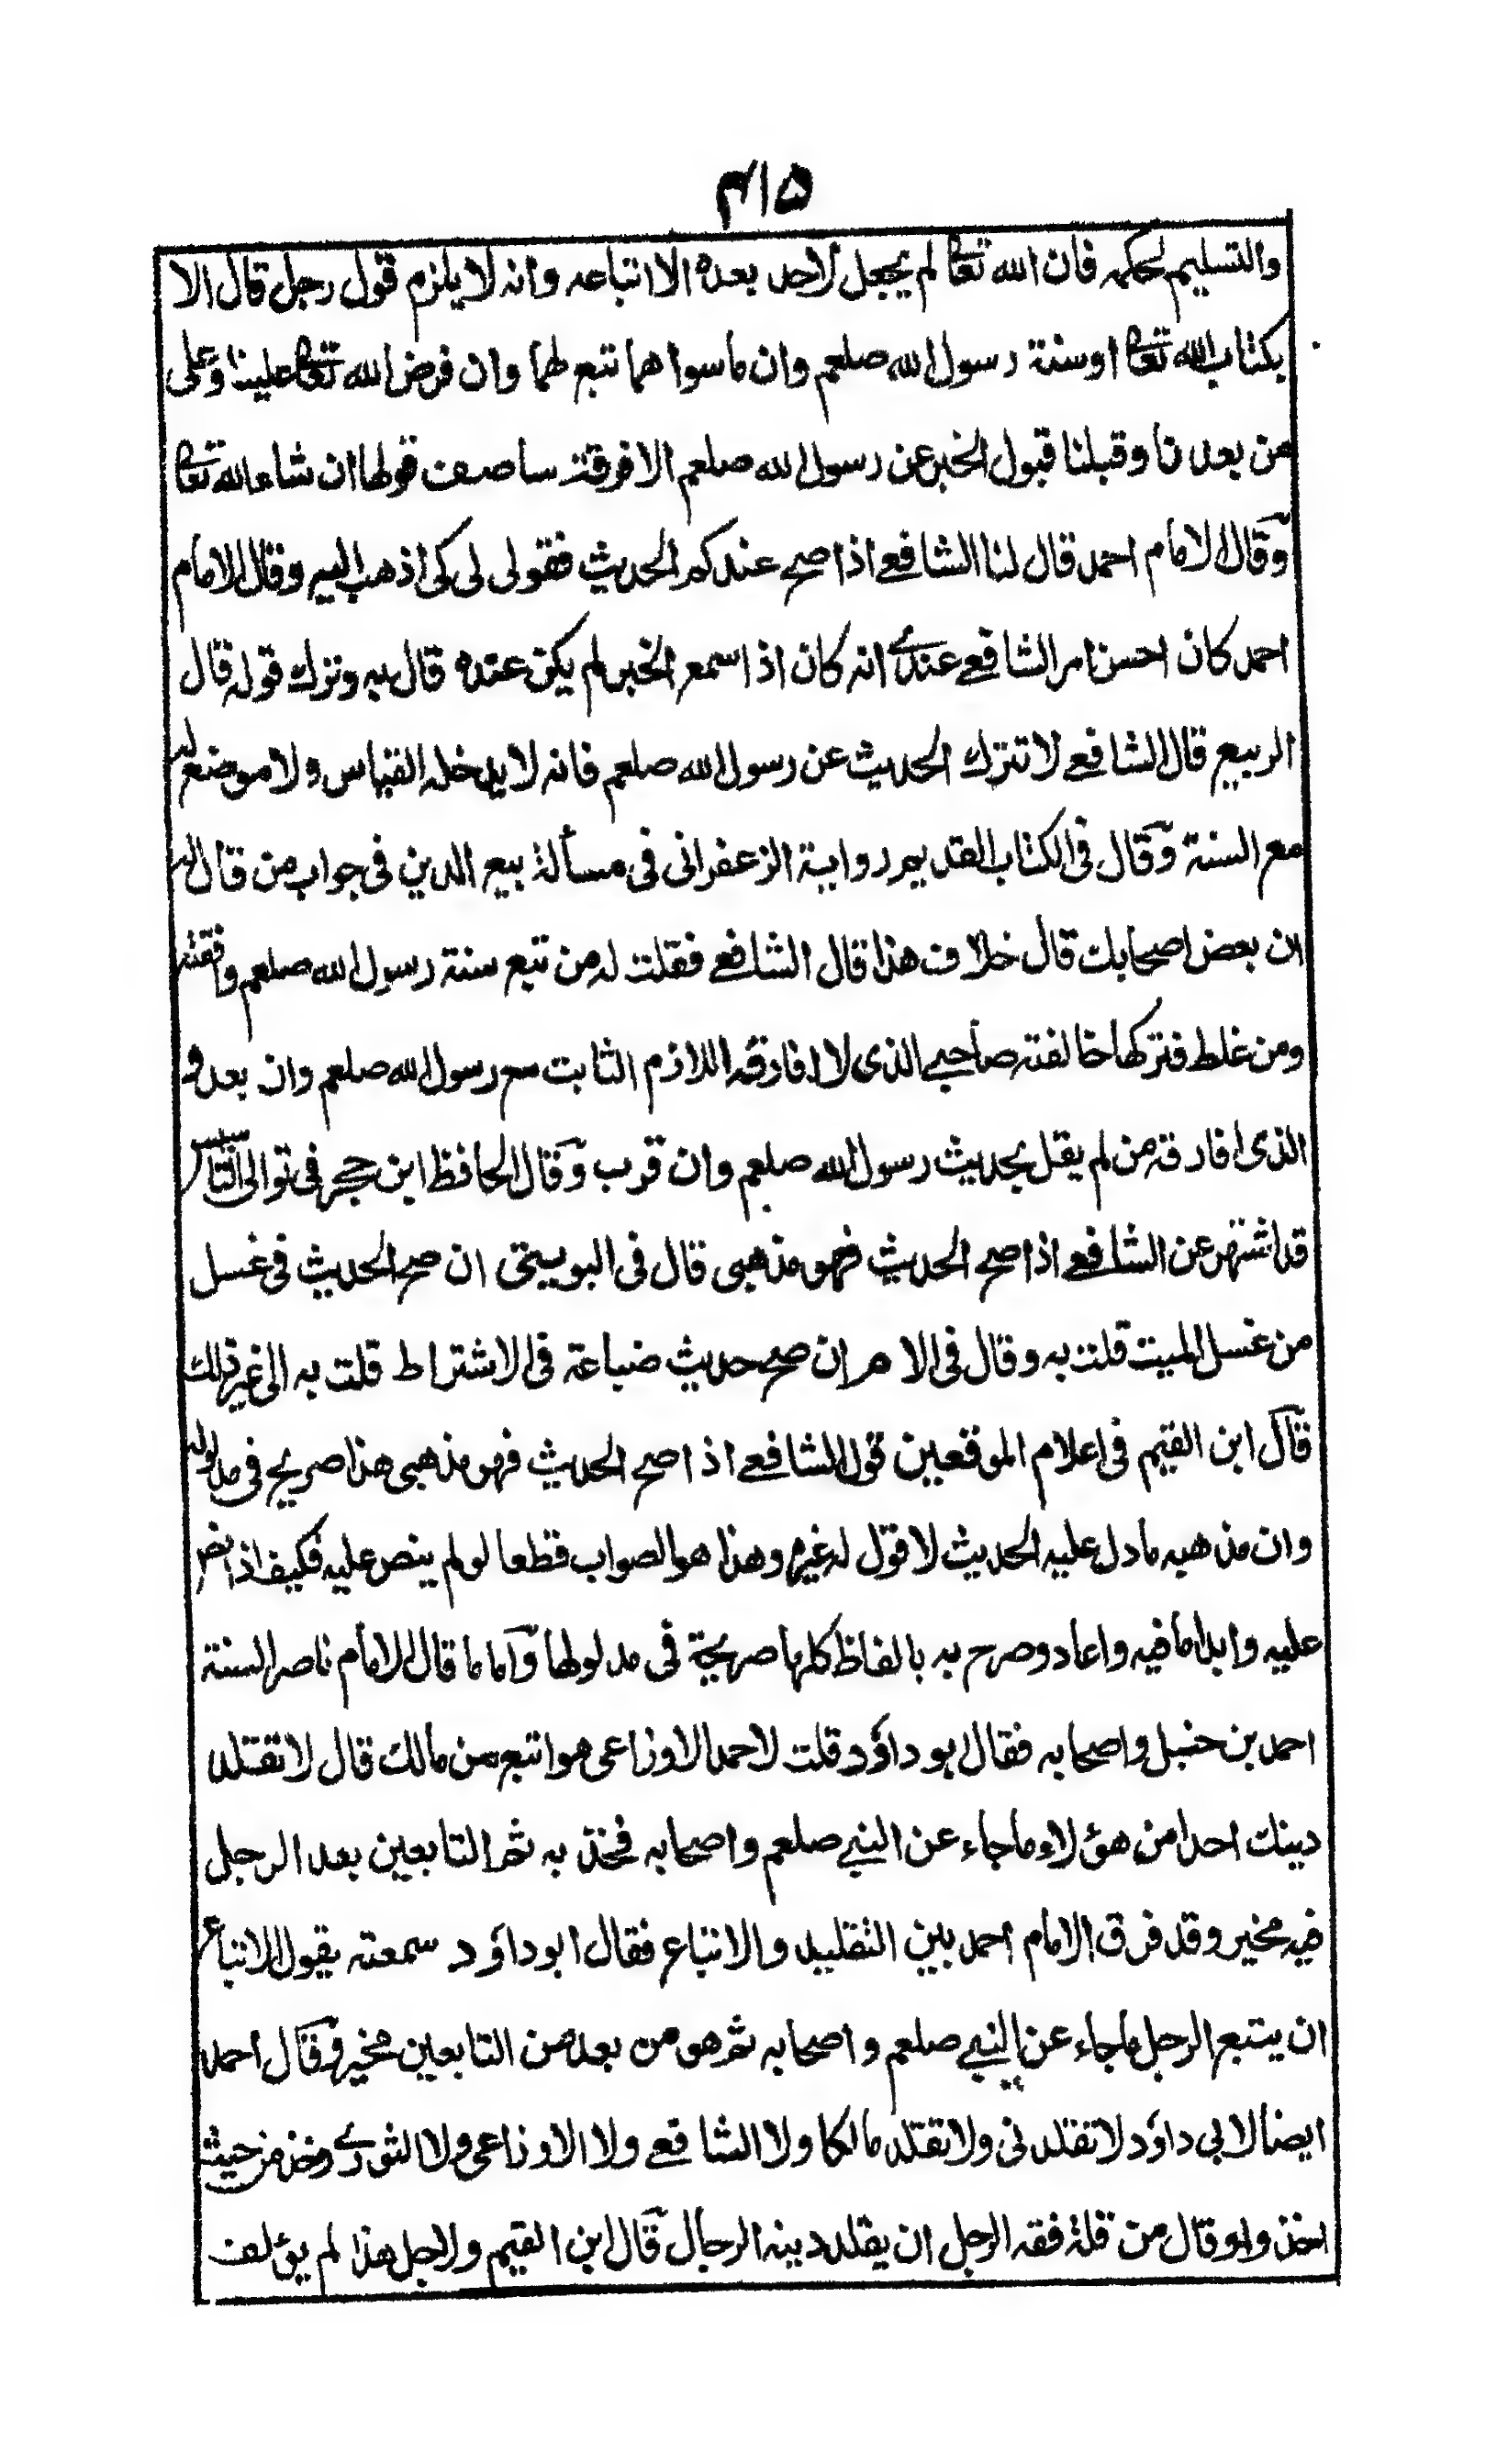 ۴۱۵
والتسليم لحكمه فان الله تعالى لم يجعل لاحد بعده الا اتباعه وانه لا يلزم قول رجل قال الا
بكتاب الله تعالى اوسنة رسول الله صلعم وان ماسواهما تبع لهما وان فرض الله تعالى علينا وعلى
من بعدنا وقبلنا قبول الخبر عن رسول الله صلعم الا فرقة ساصف قولها ان شاء الله تعالى
وقال الامام احمد قال لنا الشافعے اذا صح عندكم الحديث فقولى لى كى اذهب اليه وقال الامام
احمد كان احسن امر الشافعے عندے انه كان اذا سمع الخبر لم يكن عنده قال به وترك قوله قال
الربيع قال الشافعے لا تترك الحديث عن رسول الله صلعم فانه لا يدخله القياس ولا موضع له
مع السنة وقال فى الكتاب القديم رواية الزعفرانى فى مسألة بيع الدين فى جواب من قال له
ان بعض اصحابك قال خلاف هذا قال الشافعے فقلت له من تبع سنة رسول الله صلعم وافقته
ومن غلط فتركها خالفته صاحبے الذى لا افارقه اللازم الثابت مع رسول الله صلعم وان بعد و
الذى افارقه من لم يقل بحديث رسول الله صلعم وان قرب وقال الحافظ ابن حجر فى توالى التاسيس
قد اشتهر عن الشافعے اذا صح الحديث فهو مذهبى قال فى البويبتى ان صح الحديث فى غسل
من غسل الميت قلت به وقال فى الام ان صح حديث ضباعة فى الاشتراط قلت به الى غير ذلك
قال ابن القيم فى اعلام الموقعين قول الشافعے اذا صح الحديث فهو مذهبى هذا صريح فى مدلوله
وان مذهبه مادل عليه الحديث لا قول له غيره وهذا هو الصواب قطعا لو لم ينص عليه فكيف اذا نص
عليه وابدا ما فيه واعاد وصرح به بالفاظ كلها صريحة فى مدلولها واما ما قال الامام ناصر السنة
احمد بن حنبل واصحابه فقال بو داؤد قلت لاحمد الاوزاعى هو اتبع من مالك قال لا تقتلد
دينك احدا من هؤلاء ماجاء عن النبے صلعم واصحابه فخذ به ثم التابعين بعد الرجل
فيه مخير وقد فرق الامام احمد بين التقليد والاتباع فقال ابو داؤد سمعته يقول الاتباع
ان يتبع الرجل ماجاء عن النبے صلعم واصحابه ثم هو من بعد من التابعين مخير وقال احمد
ايضا لابى داؤد لا تقلدنى ولا تقتلد مالكا ولا الشافعے ولا الاوزاعى ولا الثورے وخذ من حيث
اخذوا وقال من قلة فقه الرجل ان يقلد دينه الرجال قال ابن القيم ولاجل هذا لم يؤلف